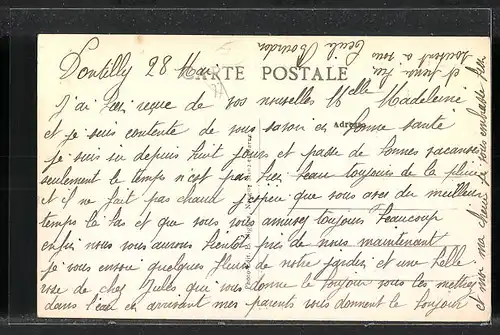 Pontilly 28 Mai
CARTE POSTALE
J'ai bien reçue de vos nouvelles Melle Madeleine
et je suis contente de vous savoir en bonne santé
Adresse
je suis ici depuis huit jours et passe de bonnes vacances
seulement le temps n'est pas bien beau toujours de la pluie
et il ne fait pas chaud j'espère que vous avez du meilleur
temps là bas et que vous vous amusez toujours beaucoup
enfin nous vous aurons bientôt près de nous maintenant
je vous envoie quelques fleurs de notre jardin et une belle
rose de chez Jules qui vous donne le bonjour vous les mettrez
dans l'eau en arrivant mes parents vous donnent le bonjour
et moi ma chérie je vous embrasse bien
souvent à vous